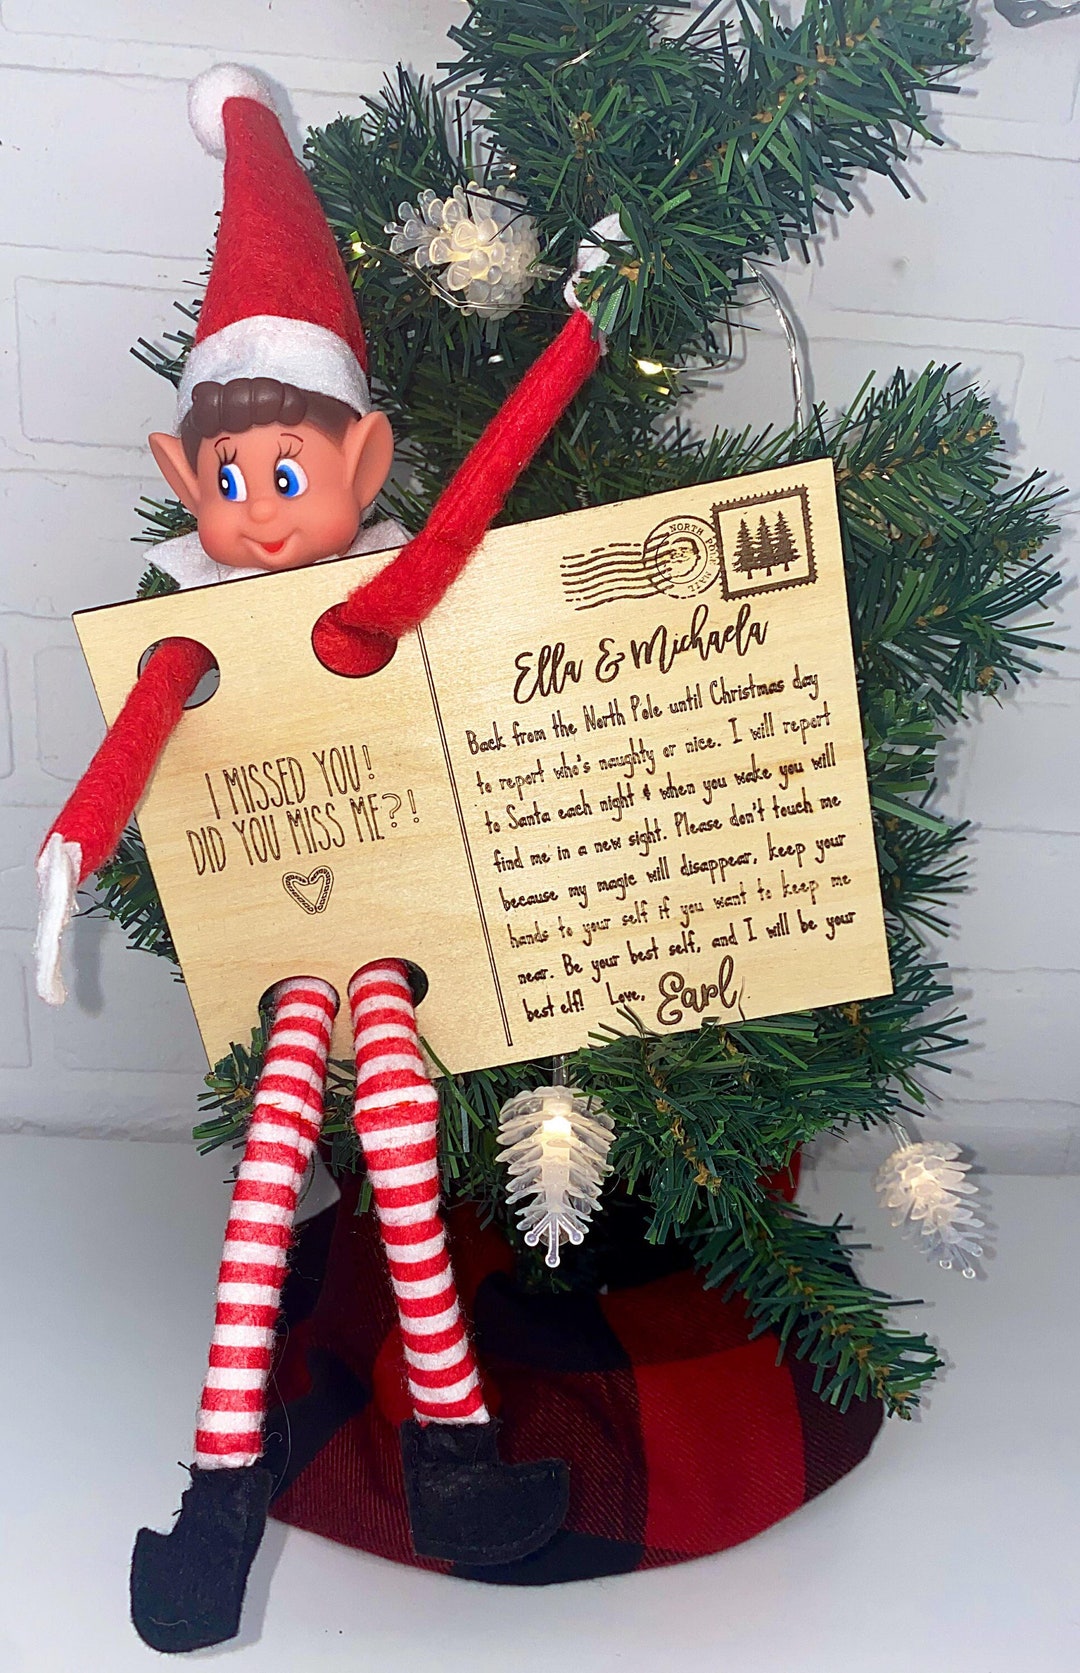 NORTH POLE
Ella & Michaela
Back from the North Pole until Christmas day
to report who's naughty or nice. I will report
to Santa each night & when you wake you will
find me in a new sight. Please don't touch me
because my magic will disappear, keep your
hands to your self if you want to keep me
near. Be your best self, and I will be your
best elf! Love, Earl
I MISSED YOU!
DID YOU MISS ME?!